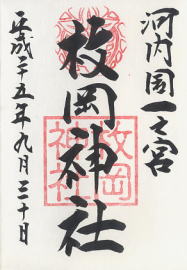 河内国一之宮
枚岡神社
平成二十五年九月三十日
枚岡
神社